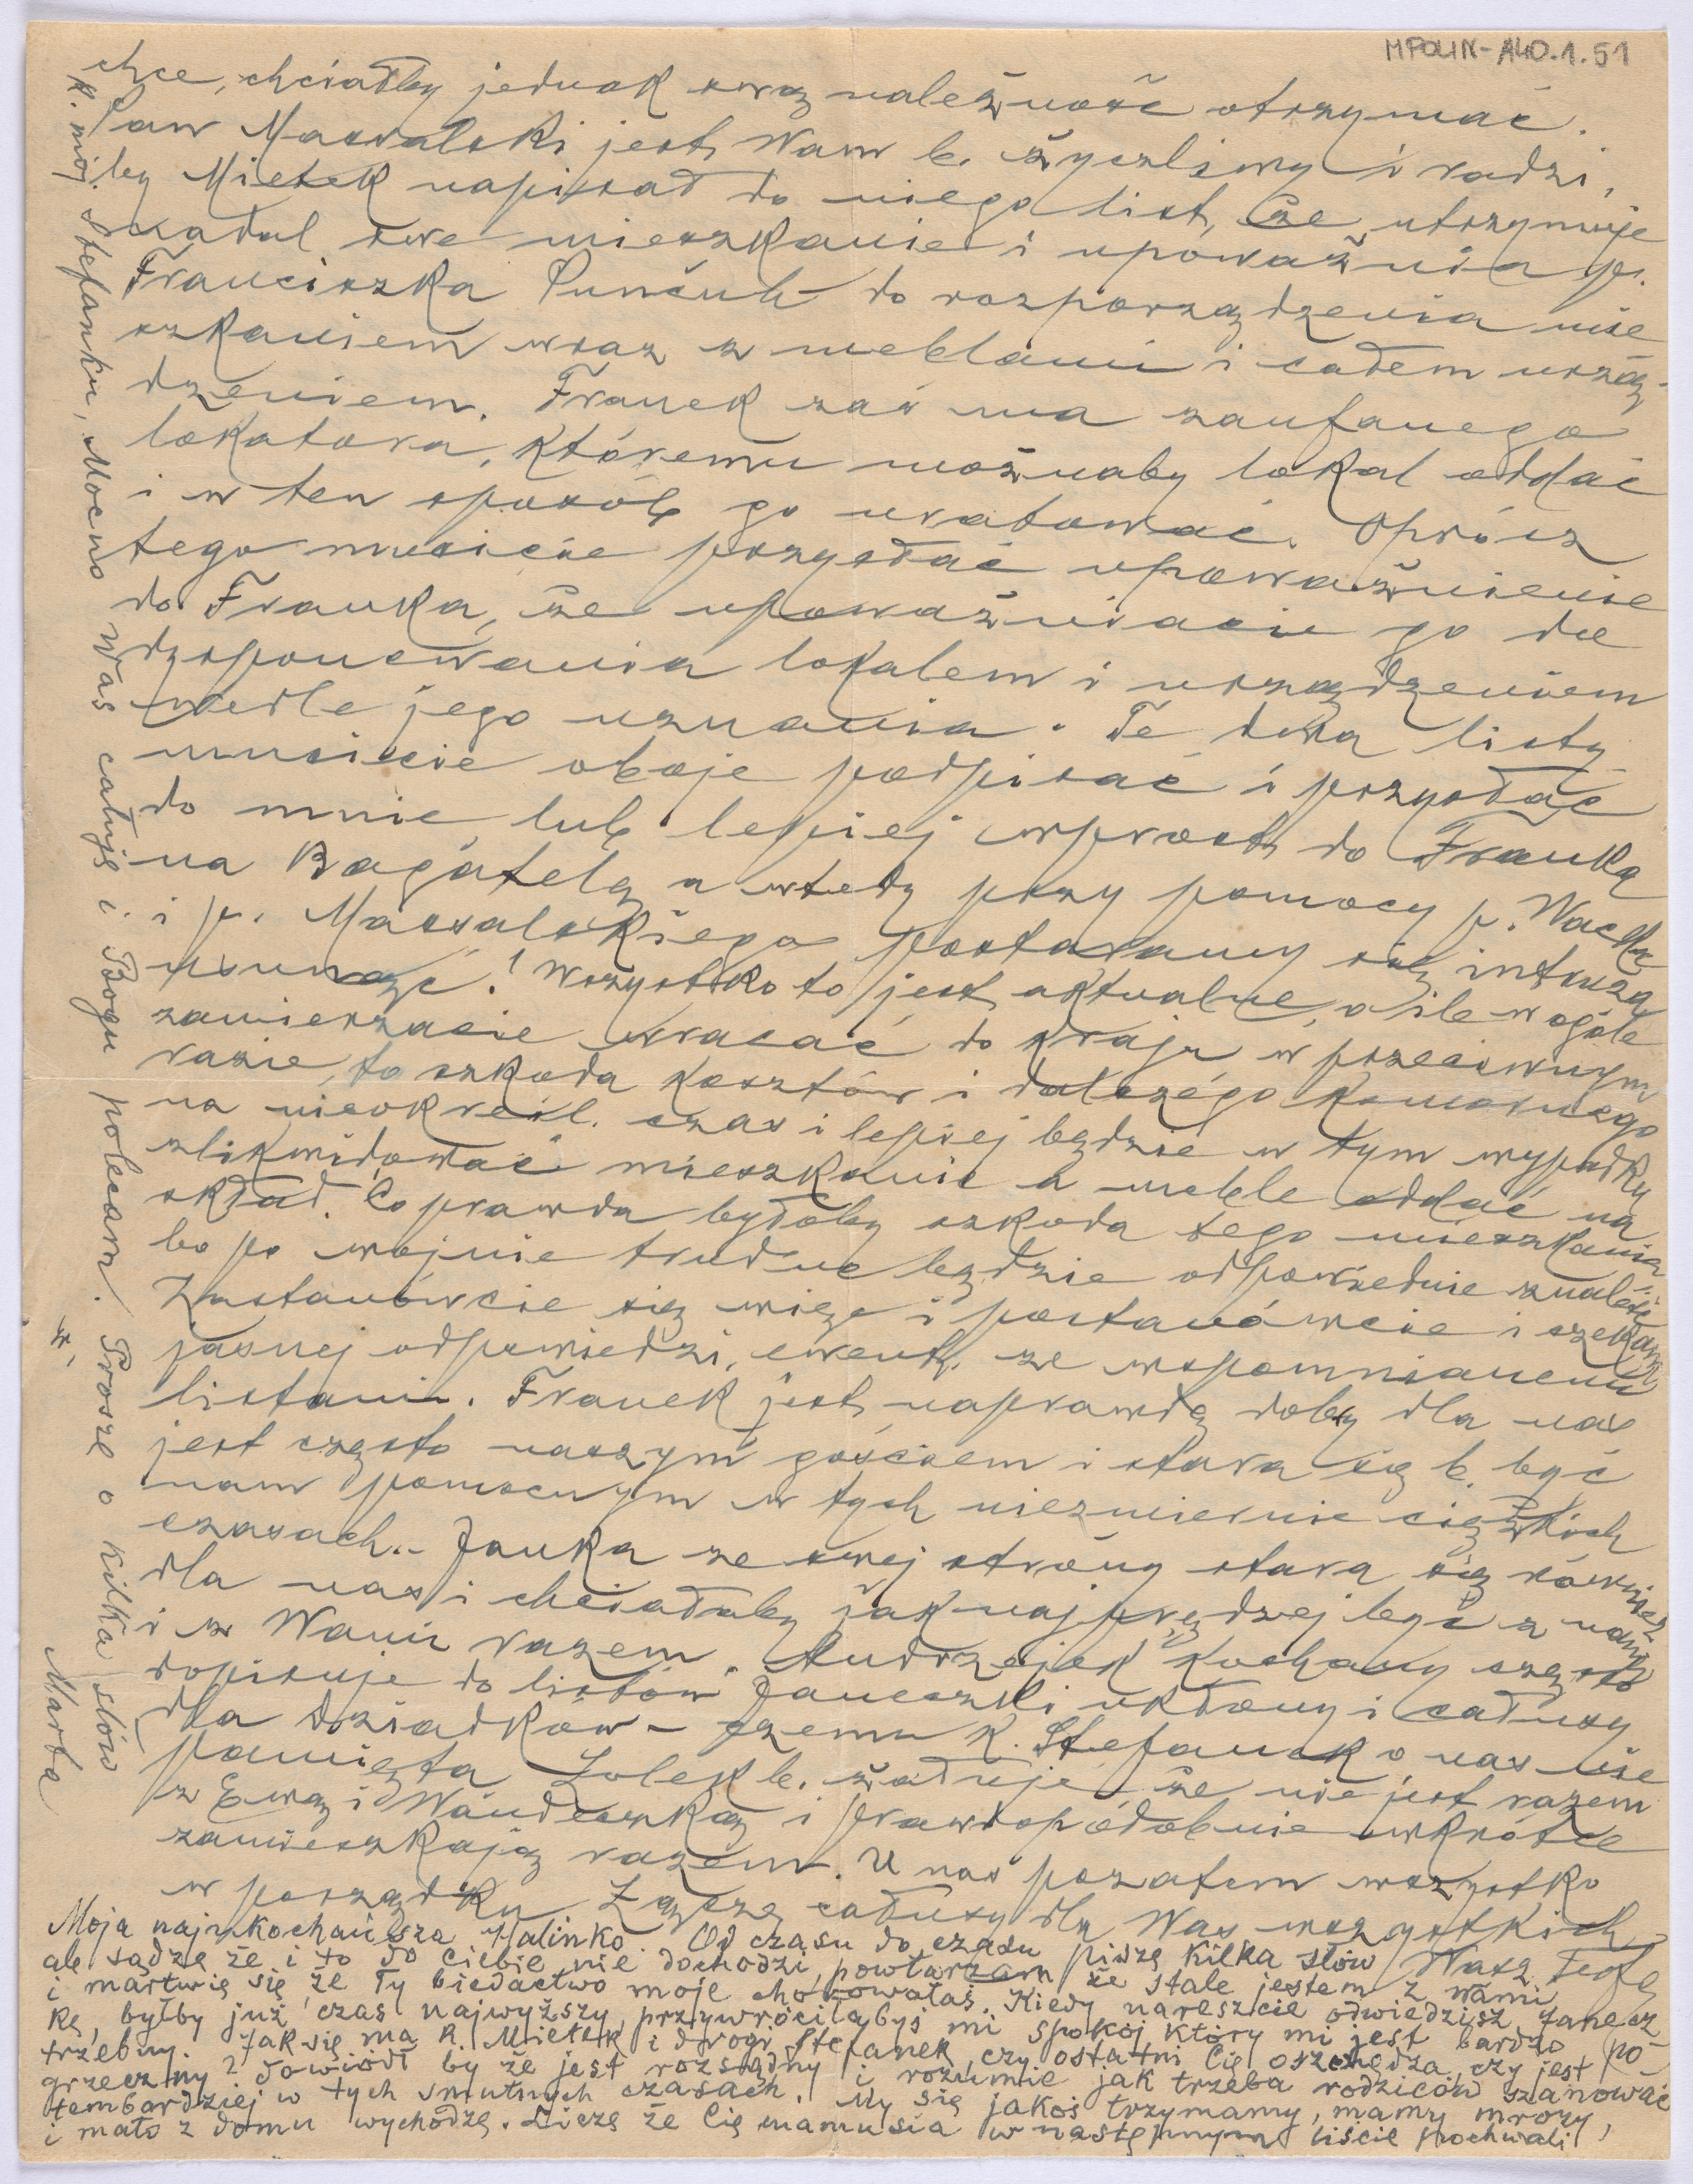 MPOLIN-A40.1.51
chce, chciałby jednak swą należność otrzymać.
Pan Massalski jest Wam b. życzliwy i radzi,
by Mietek napisał do niego list, że utrzymuje
nadal swe mieszkanie i upoważnia p.
Franciszka Punčuh do rozporządzenia mie
szkaniem wraz z meblami i całem urzą-
dzeniem. Franek zaś ma zaufanego
lokatora, któremu możnaby lokal oddać
i w ten sposób go uratować. Oprócz
tego musicie przysłać upoważnienie
do Franka, że upoważniacie go do
dysponowania lokalem i urządzeniem
wedle jego uznania. Te dwa listy
musicie oboje podpisać i przysłać
do mnie lub lepiej wprost do Franka
na Bagatelę a wtedy przy pomocy p. Wacka
i p. Massalskiego postaramy się intruza
usunąć! Wszystko to jest aktualne, o ile w ogóle
zamierzacie wracać do kraju w przeciwnym
razie, to szkoda kosztów i dalszego komornego
na nieokreśl. czas i lepiej będzie w tym wypadku
zlikwidować mieszkanie a meble oddać na
skład. Co prawda byłoby szkoda tego mieszkania
bo po wojnie trudno będzie odpowiednie znaleźć.
Zastanówcie się więc i postanówcie i czekamy
jasnej odpowiedzi, ewent. ze wspomnianemi
listami. Franek jest naprawdę dobry dla nas
jest często naszym gościem i stara się b. być
nam pomocnym w tych niezmiernie ciężkich
czasach.- Janka ze swej strony stara się również
dla nas i chciałaby jaknajprędzej być z nami
i z Wami razem. Andrzejek kochany często
dopisuje do listów Janeczki ukłony i całusy
dla dziadków - czemu k. Stefanek o nas nie
pamięta Lolek b. żałuje, że nie jest razem
z Ewą i Wandeczką i prawdopodobnie wkrótce
zamieszkają razem. U nas pozatem wszystko
w porządku. Łączę całusy dla Was wszystkich
Wasz
Moja najukochańsza Halinko. Od czasu do czasu piszę kilka słów
ale sądzę że i to do Ciebie nie dochodzi, powtarzam że stale jestem z Wami
i martwię się, że Ty biedactwo moje chorowałaś. Kiedy nareszcie odwiedzisz Janecz
kę, byłby już czas najwyższy, przywróciłabyś mi spokój który mi jest bardzo po-
trzebny. Jak się ma k. Mietek i drogi Stefanek, czy ostatni Cię oszczędza, czy jest
grzeczny? dowiódł by że jest rozsądny i rozumie jak trzeba rodziców szanować
tembardziej w tych smutnych czasach. My się jakoś trzymamy, mamy mrozy,
i mało z domu wychodzę. Liczę że Cię mamusia w następnym liście pochwali
k. mój Stefanku, Mocno Was całuję i Bogu polecam. Proszę o kilka słów
Marta